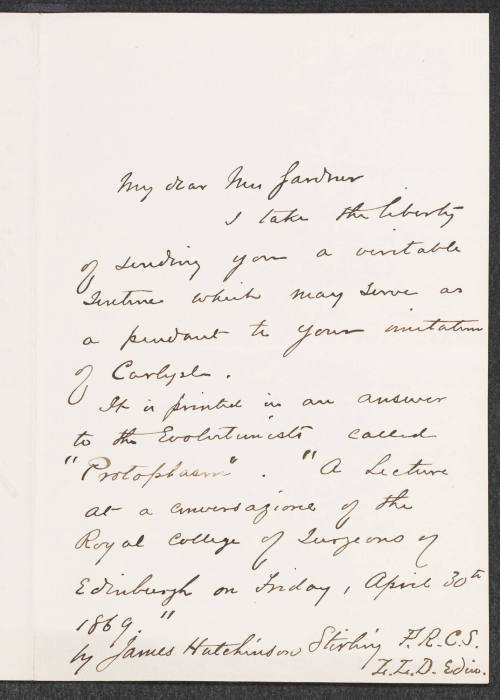 My dear Mrs Gardner
I take the liberty
of sending you a veritable
Sentence which may serve as
a pendant to your imitation
of Carlyle.
It is printed in an answer
to the Evolutionists called
"Protoplasm". "A Lecture
at a conversazione of the
Royal College of Surgeons of
Edinburgh on Friday, April 30th
1869."
by James Hutchinson Stirling F.R.C.S.
L.L.D. Edin.